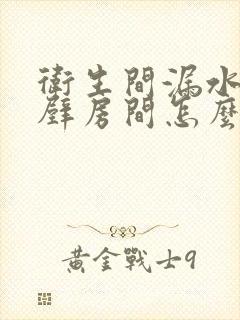 衛生間漏水
壁房間怎麼
黃金戰士9